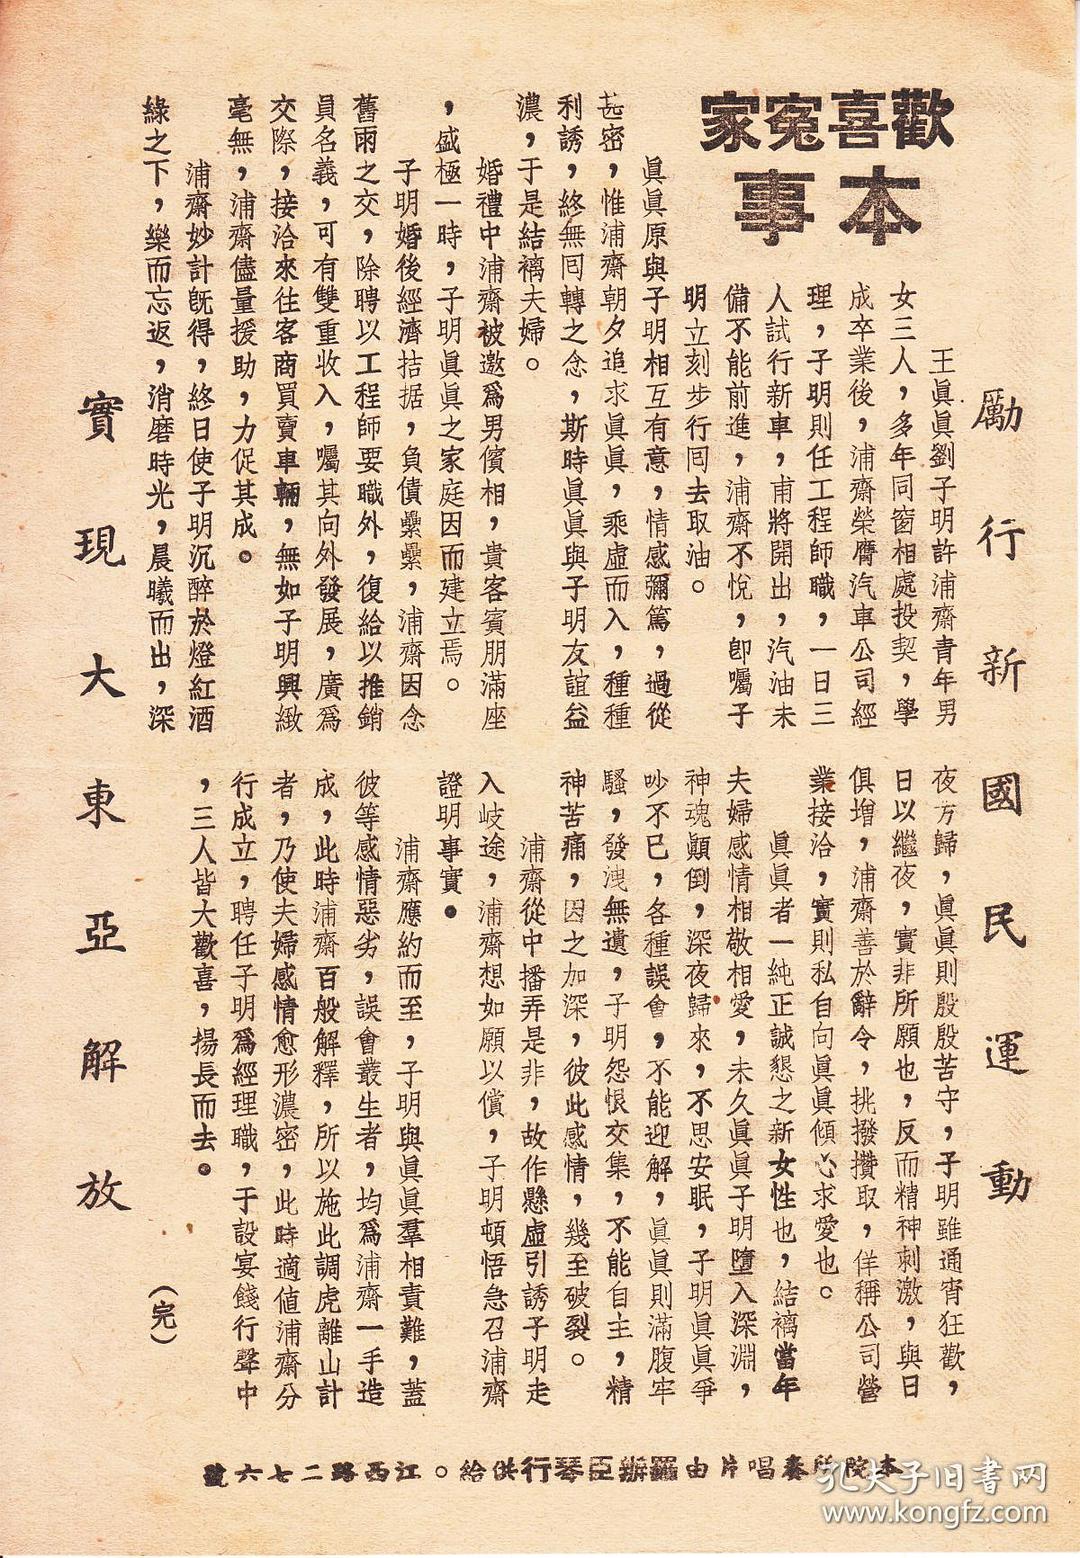 歡喜冤家
本事
勵行新國民運動
王眞眞劉子明許浦齋青年男
女三人，多年同窗相處投契，學
成卒業後，浦齋榮膺汽車公司經
理，子明則任工程師職，一日三
人試行新車，甫將開出，汽油未
備不能前進，浦齋不悅，卽囑子
明立刻步行囘去取油。
眞眞原與子明相互有意，情感彌篤，過從
甚密，惟浦齋朝夕追求眞眞，乘虛而入，種種
利誘，終無囘轉之念，斯時眞眞與子明友誼益
濃，于是結褵夫婦。
婚禮中浦齋被邀爲男儐相，貴客賓朋滿座
，盛極一時，子明眞眞之家庭因而建立焉。
子明婚後經濟拮据，負債纍纍，浦齋因念
舊雨之交，除聘以工程師要職外，復給以推銷
員名義，可有雙重收入，囑其向外發展，廣爲
交際，接洽來往客商買賣車輛，無如子明興緻
毫無，浦齋儘量援助，力促其成。
浦齋妙計旣得，終日使子明沉醉於燈紅酒
綠之下，樂而忘返，消磨時光，晨曦而出，深
夜方歸，眞眞則殷殷苦守，子明雖通宵狂歡，
日以繼夜，實非所願也，反而精神刺激，與日
俱增，浦齋善於辭令，挑撥攢取，佯稱公司營
業接洽，實則私自向眞眞傾心求愛也。
眞眞者一純正誠懇之新女性也，結褵當年
夫婦感情相敬相愛，未久眞眞子明墮入深淵，
神魂顚倒，深夜歸來，不思安眠，子明眞眞爭
吵不已，各種誤會，不能迎解，眞眞則滿腹牢
騷，發洩無遺，子明怨恨交集，不能自主，精
神苦痛，因之加深，彼此感情，幾至破裂。
浦齋從中播弄是非，故作懸虛引誘子明走
入歧途，浦齋想如願以償，子明頓悟急召浦齋
證明事實。
浦齋應約而至，子明與眞眞羣相責難，蓋
彼等感情惡劣，誤會叢生者，均爲浦齋一手造
成，此時浦齋百般解釋，所以施此調虎離山計
者，乃使夫婦感情愈形濃密，此時適値浦齋分
行成立，聘任子明爲經理職，于設宴餞行聲中
，三人皆大歡喜，揚長而去。
（完）
實現大東亞解放
本院所奏唱片由羅辦臣琴行供給。江西路二七六號
孔夫子旧书网
www.kongfz.com